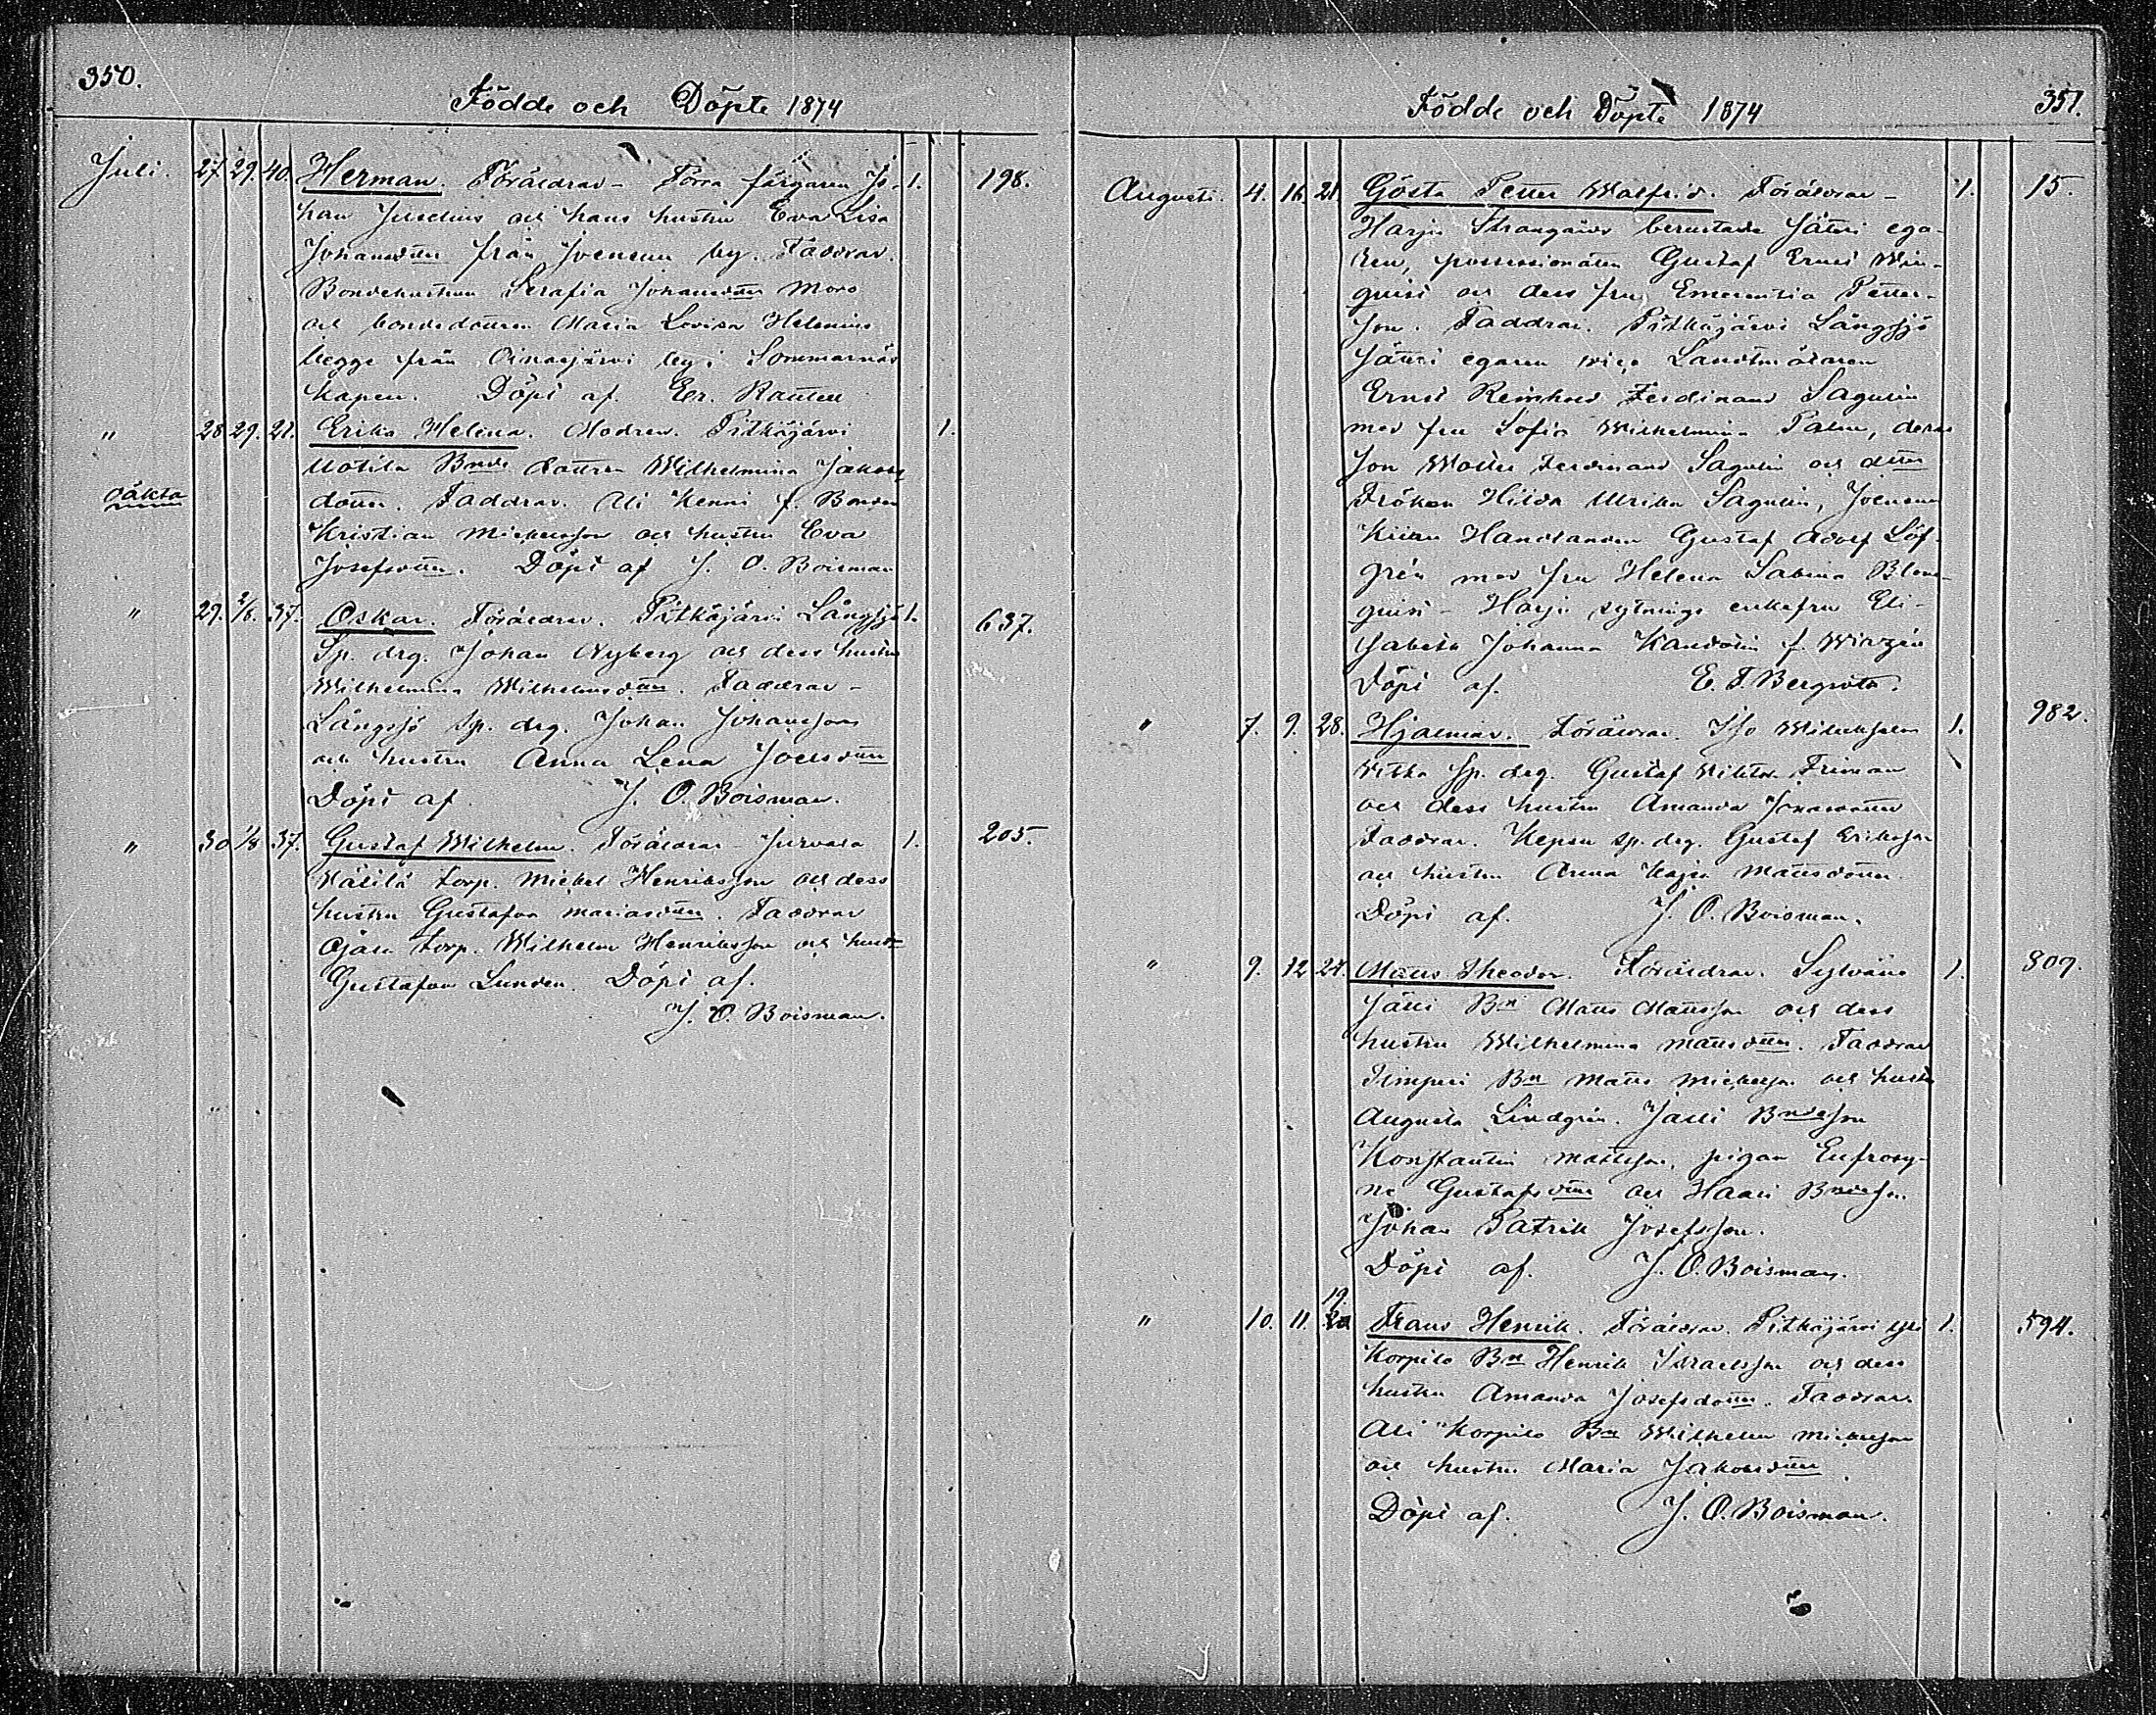 350.
Födde och Döpte 1874
Juli. 27. 29. 40. Herman. Föräldrar - Förra färgaren Jo- 1. 198.
han Juselius och hans hustru Eva Lisa
Johansdtter från Joensuu by. Faddrar.
Bondehustrun Serafia Johansdtter Moro
och bondedottren Maria Lovisa Helenius
begge från Oinasjärvi by i Sommarnäs
kapell. Döpt af. Er. Rautell
" 28 29. 21. Erika Helena. Modren. Pitkäjärvi 1.
Uotila Bnde dottren Wilhelmina Jakobs
oäkta dotter. Faddrar. Ali Kenni f. Bonden
Kristian Mickelsson och hustru Eva
Josefsdtter. Döpt af J. O. Boisman
" 29. 2/8. 37. Oskar. Föräldrar. Pitkäjärvi Långsjö 1. 637.
Sp. drg. Johan Nyberg och dess hustru
Wilhelmina Wilhelmsdtter. Faddrar -
Långsjö Sp. drg. Johan Johansson
och hustru Anna Lena Joelsdtter
Döpt af. J. O. Boisman.
" 30 1/8 37. Gustaf Wilhelm. Föräldrar - Jurvala 1. 205.
torp. Mickel Henriksson och dess
hustru Gustafva Mariasdtter. Faddrar
Ojala torp. Wilhelm Henriksson och hust:
Gustafva Lunden. Döpt af.
J. O. Boisman.
351.
Födde och Döpte 1874
Augusti. 4. 16. 21. Gösta Petter Walfrid. Föräldrar - 1. 15.
Harju Strangårds berustade säteri ega-
ren, possessionaten Gustaf Ernst Win-
quist och dess fru Emerentia Petter-
son. Faddrar. Pitkäjärvi Långsjö
säteri egaren vice Landtmätaren
Ernst Reinhold Ferdinand Sagulin
med fru Sofia Wilhelmina Palm, deras
son Ferdinand Sagulin och dtter
Fröken Hilda Ulrika Sagulin, Joensuu
Handlanden Gustaf Adolf Löf-
grén med fru Helena Sabina Blom-
quist - Harju sytnings enkefru Eli-
sabeth Johanna f.
Döpt af. E. F. Bergroth.
" 7. 9. 28. Hjalmar. Föräldrar. Iso 1. 982.
Sp. drg. Gustaf Viktor Friman
och dess hustru Amanda
Faddrar. Kepsu Sp. drg. Gustaf Eriksson
och hustru Anna Kajsa Mattsdotter.
Döpt af. J. O. Boisman.
" 9. 12 24. Matts Theodor. Föräldrar. Sylvänä 1. 809.
Jalli Bn Matts Mattsson och dess
hustru Wilhelmina Mattsdtter. Faddrar
Timperi Bn Matts Mickelsson och hustru
Augusta Lindgrén. Jalli Bndeson
Konstantin Mattsson, pigan Eufrosy-
ne Gustafsdtter och Haari Bndeson
Johan Patrik Josefsson.
Döpt af. J. O. Boisman.
" 10. 11. 19. 20 Frans Henrik. Föräldrar. Pitkäjärvi Yli 1. 594.
Korpilo Bn Henrik Israelsson och dess
hustru Amanda Josefsdotter. Faddrar.
Ali Korpilo Bn Wilhelm Mickelsson
och hustru Maria Jakobsdtter
Döpt af. J. O. Boisman.